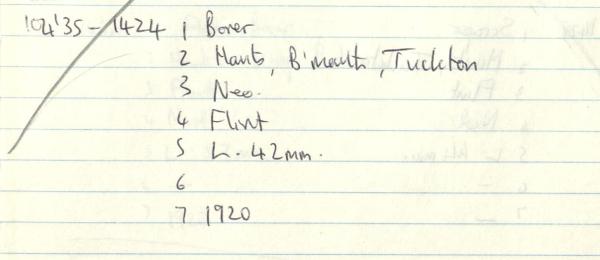 104'35-1424 1 Borer
2 Hants, B'mouth, Tuckton
3 Neo.
4 Flint
5 L. 42mm.
6
7 1920